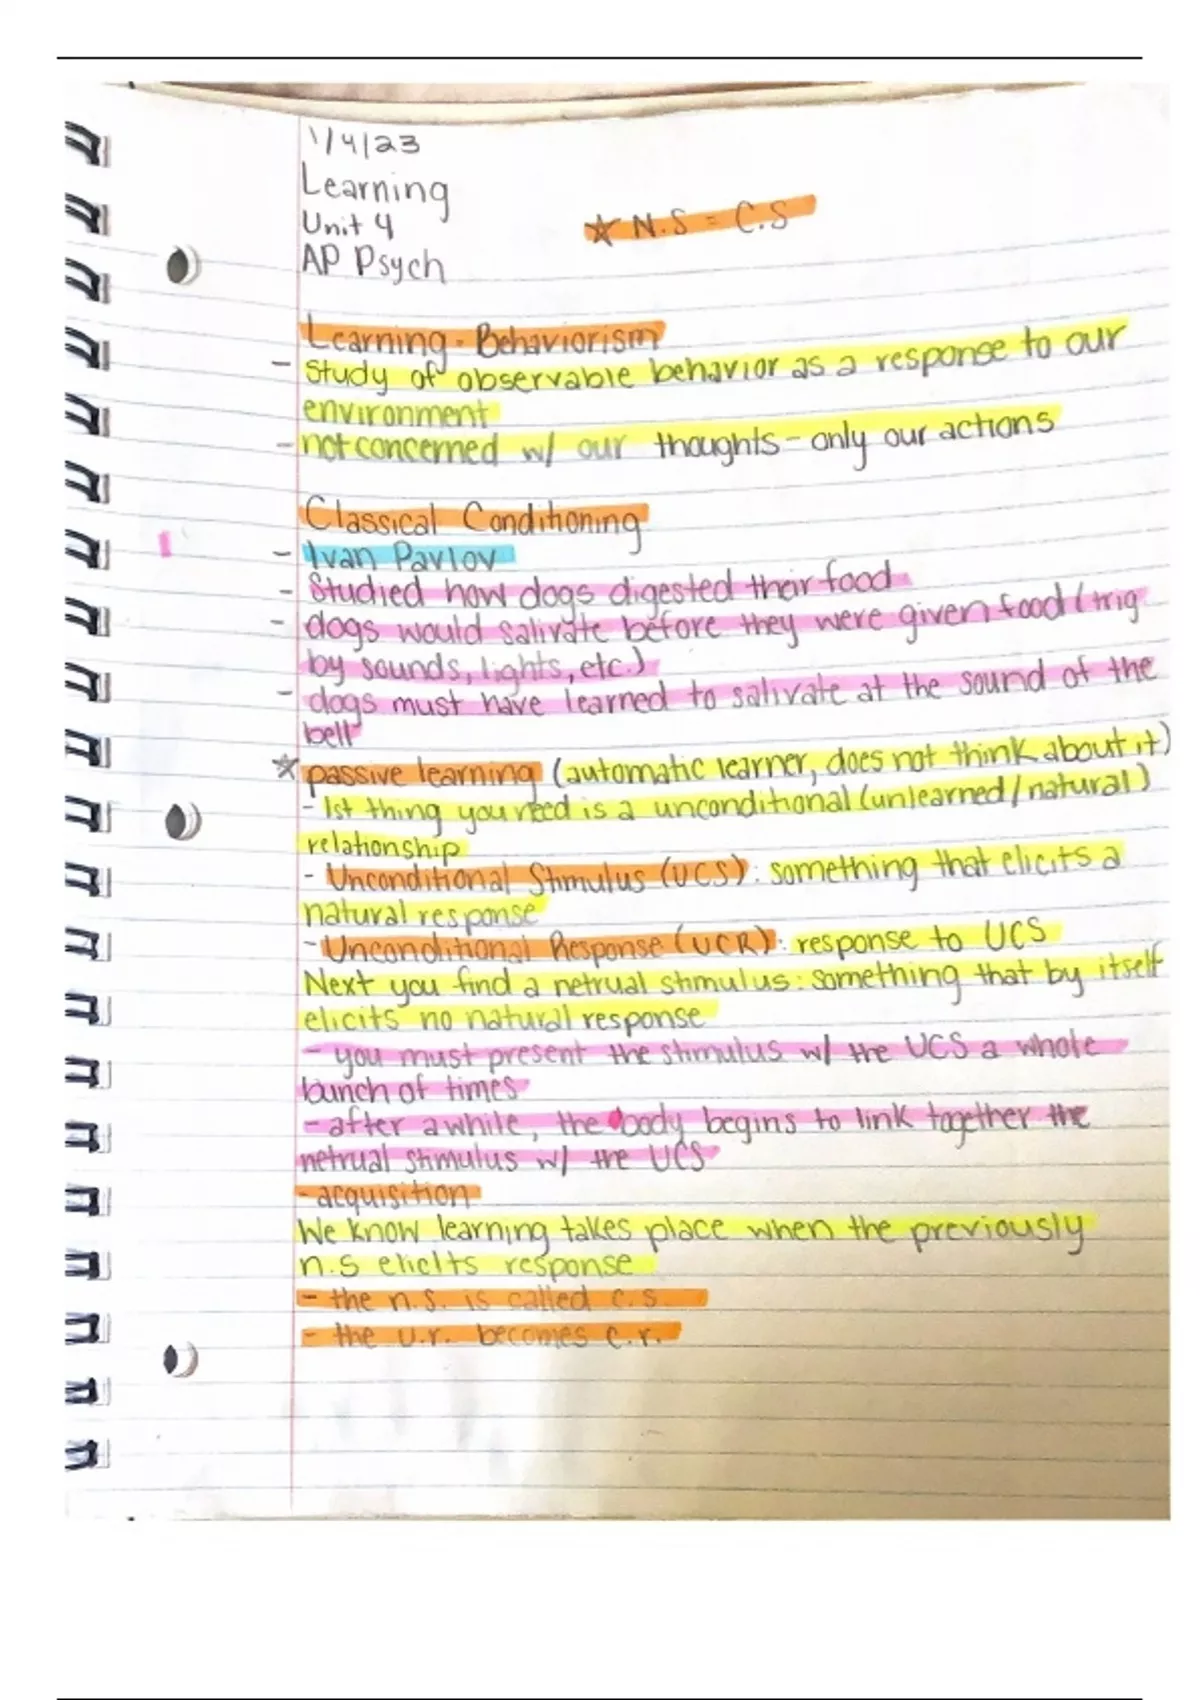 1/4/23
Learning
Unit 4
☆ N.S = C.S
AP Psych
Learning - Behaviorism
- Study of observable behavior as a response to our
environment
- not concerned w/ our thoughts - only our actions
Classical Conditioning
- Ivan Pavlov
- Studied how dogs digested their food
- dogs would salivate before they were given food (trig
by sounds, lights, etc.)
- dogs must have learned to salivate at the sound of the
bell
☆ passive learning (automatic learner, does not think about it)
- 1st thing you need is a unconditional (unlearned/natural)
relationship
- Unconditional Stimulus (UCS): something that elicits a
natural response
- Unconditional Response (UCR): response to UCS
Next you find a netrual stimulus: something that by itself
elicits no natural response
- you must present the stimulus w/ the UCS a whole
bunch of times
- after awhile, the body begins to link together the
netrual stimulus w/ the UCS
- acquisition
We know learning takes place when the previously
n.s elicits response
- the n.s. is called c.s.
- the u.r. becomes c.r.